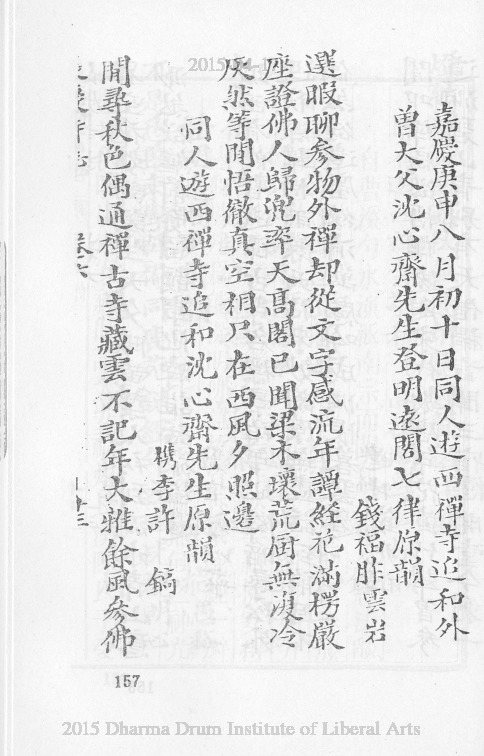 嘉慶庚申八月初十日同人遊西禪寺追和外
曾大父沈心齋先生登明遠閣七律原韻
錢福胙雲岩
選暇聊參物外禪却從文字感流年譚經花滿楞嚴
座證佛人歸兜率天高閣已聞梁木壞荒厨無復冷
灰然等閒悟徹真空相只在西風夕照邊
同人遊西禪寺追和沈心齋先生原韻
檇李許 鎬
閒尋秋色偶通禪古寺藏雲不記年大雅餘風參佛
卷六
157
2015 Dharma Drum Institute of Liberal Arts